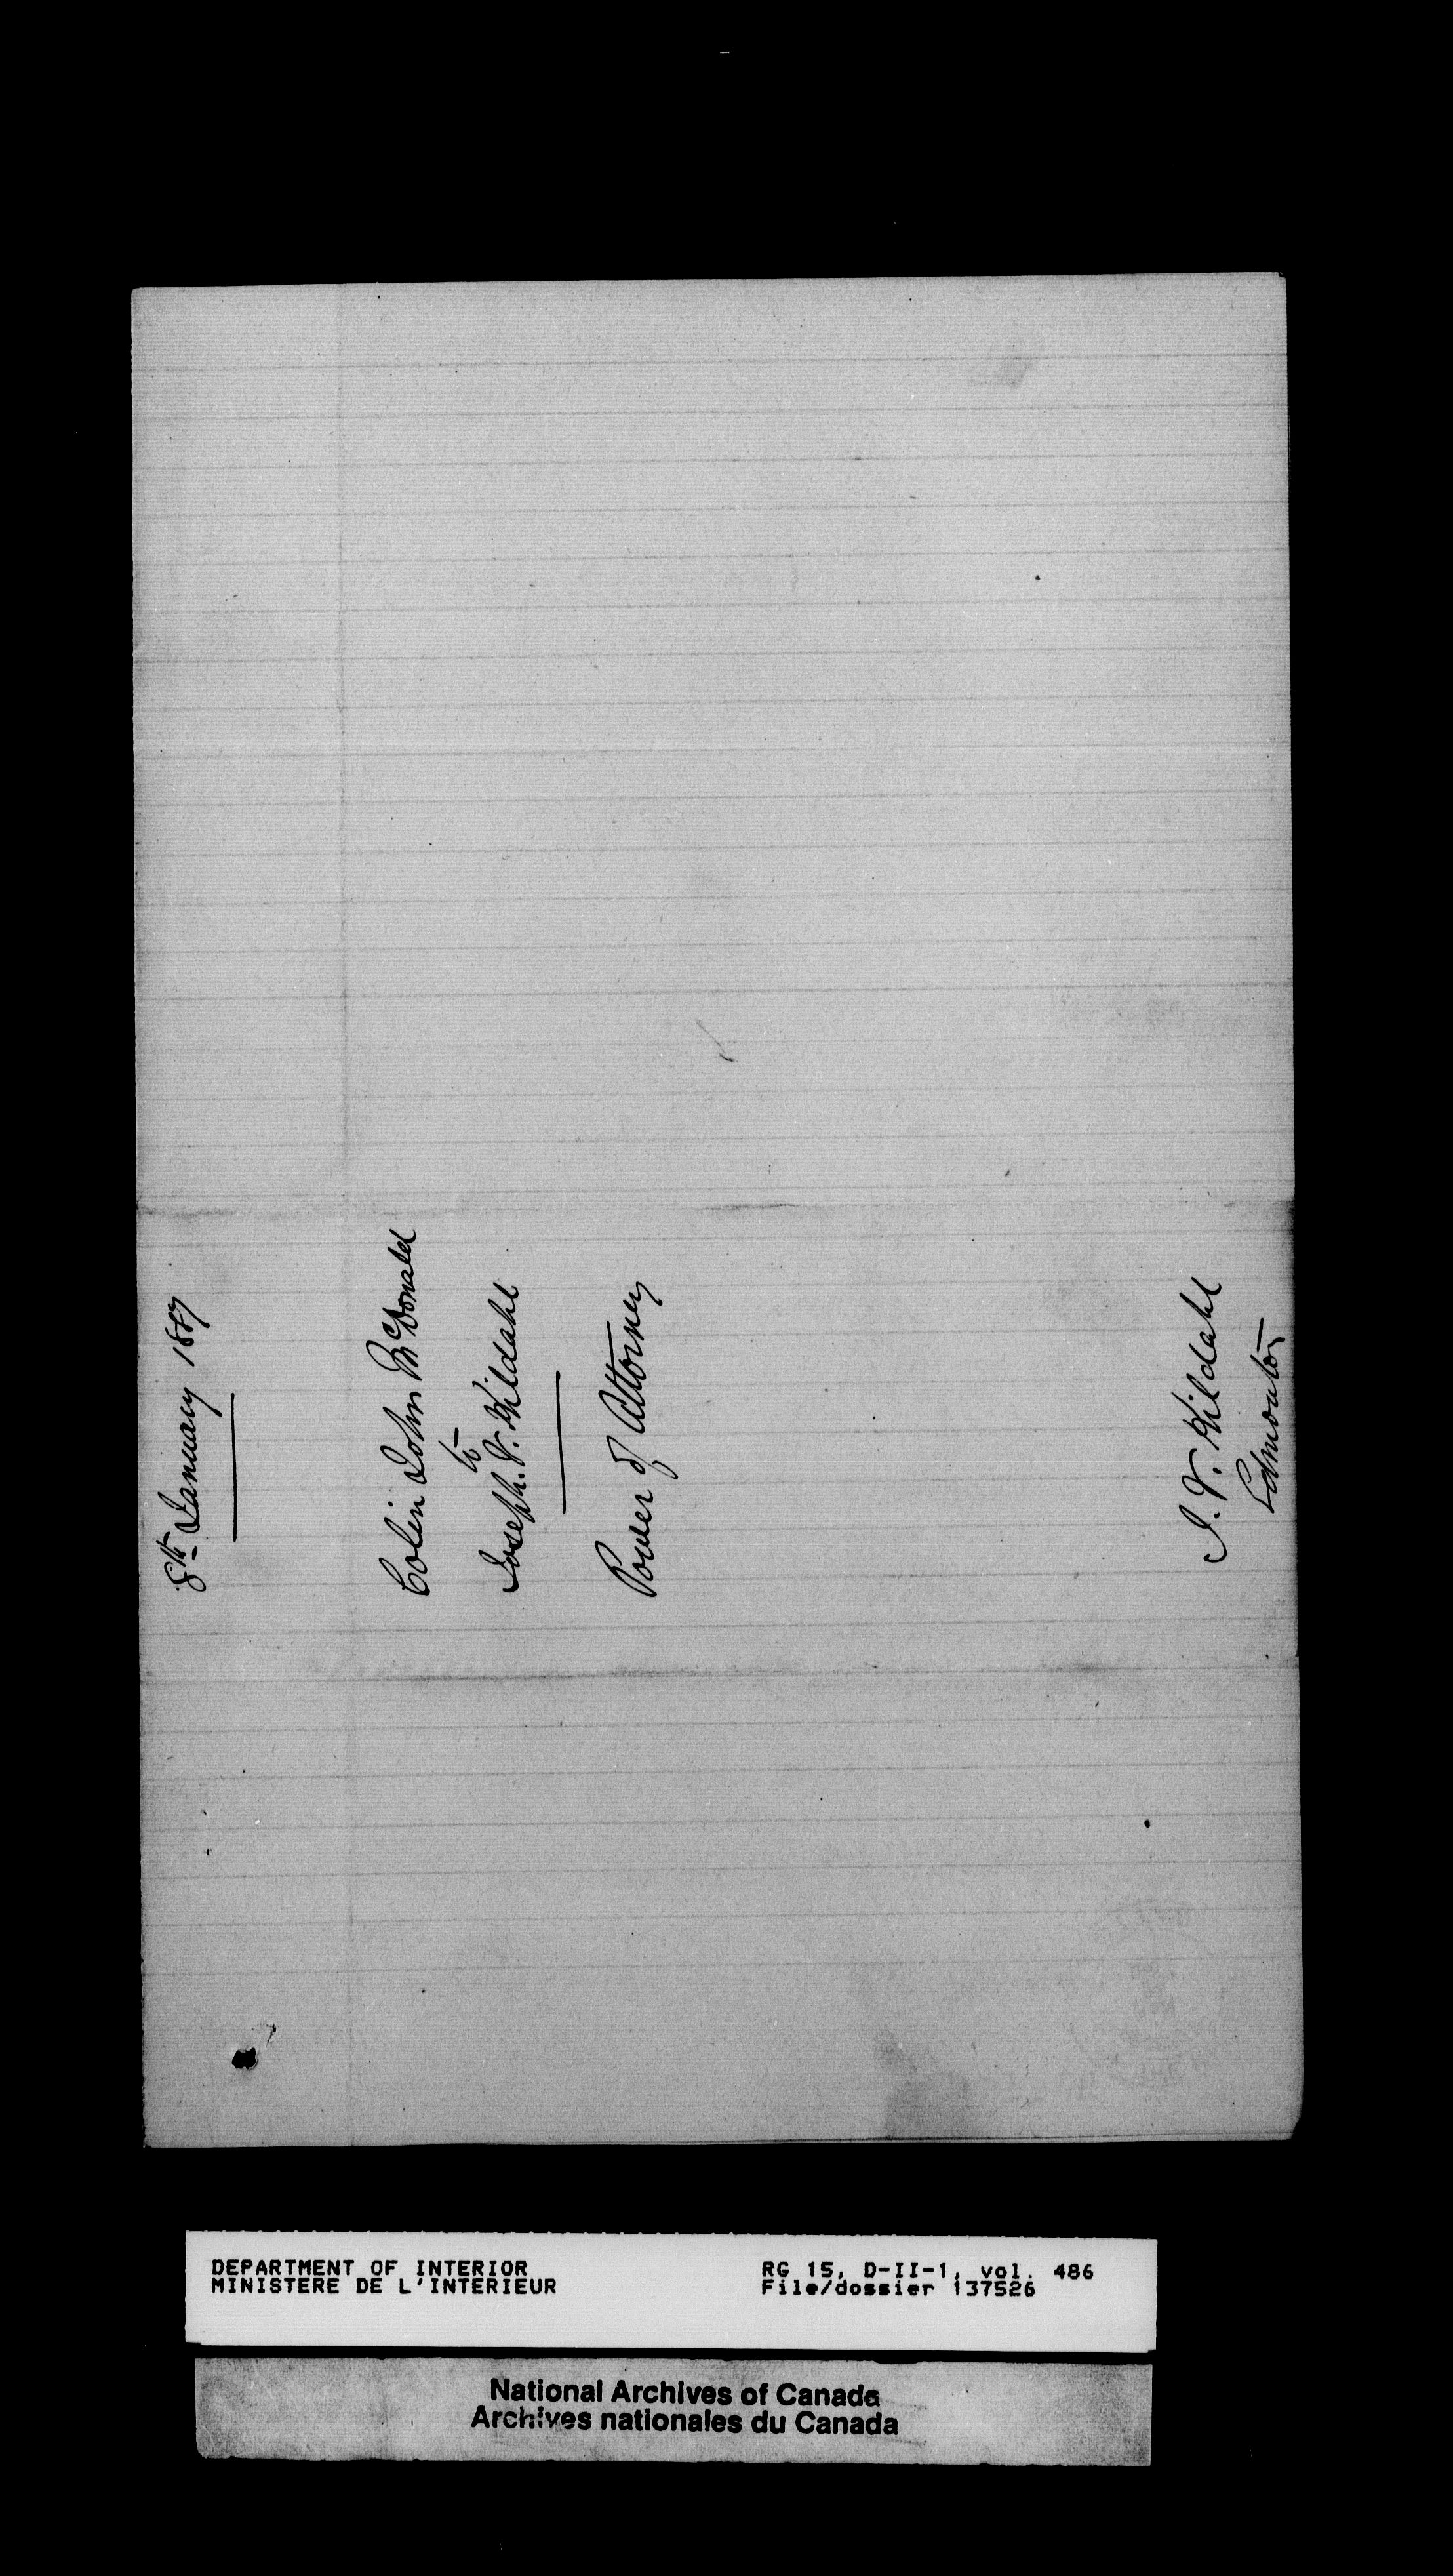 8th January 1887
Colin John McDonald
to
Joseph. V. Kildahl
Power of Attorney
J. V. Kildahl
Edmonton
DEPARTMENT OF INTERIOR
MINISTERE DE L'INTERIEUR
RG 15, D-II-1, vol. 486
File/dossier 137526
National Archives of Canada
Archives nationales du Canada